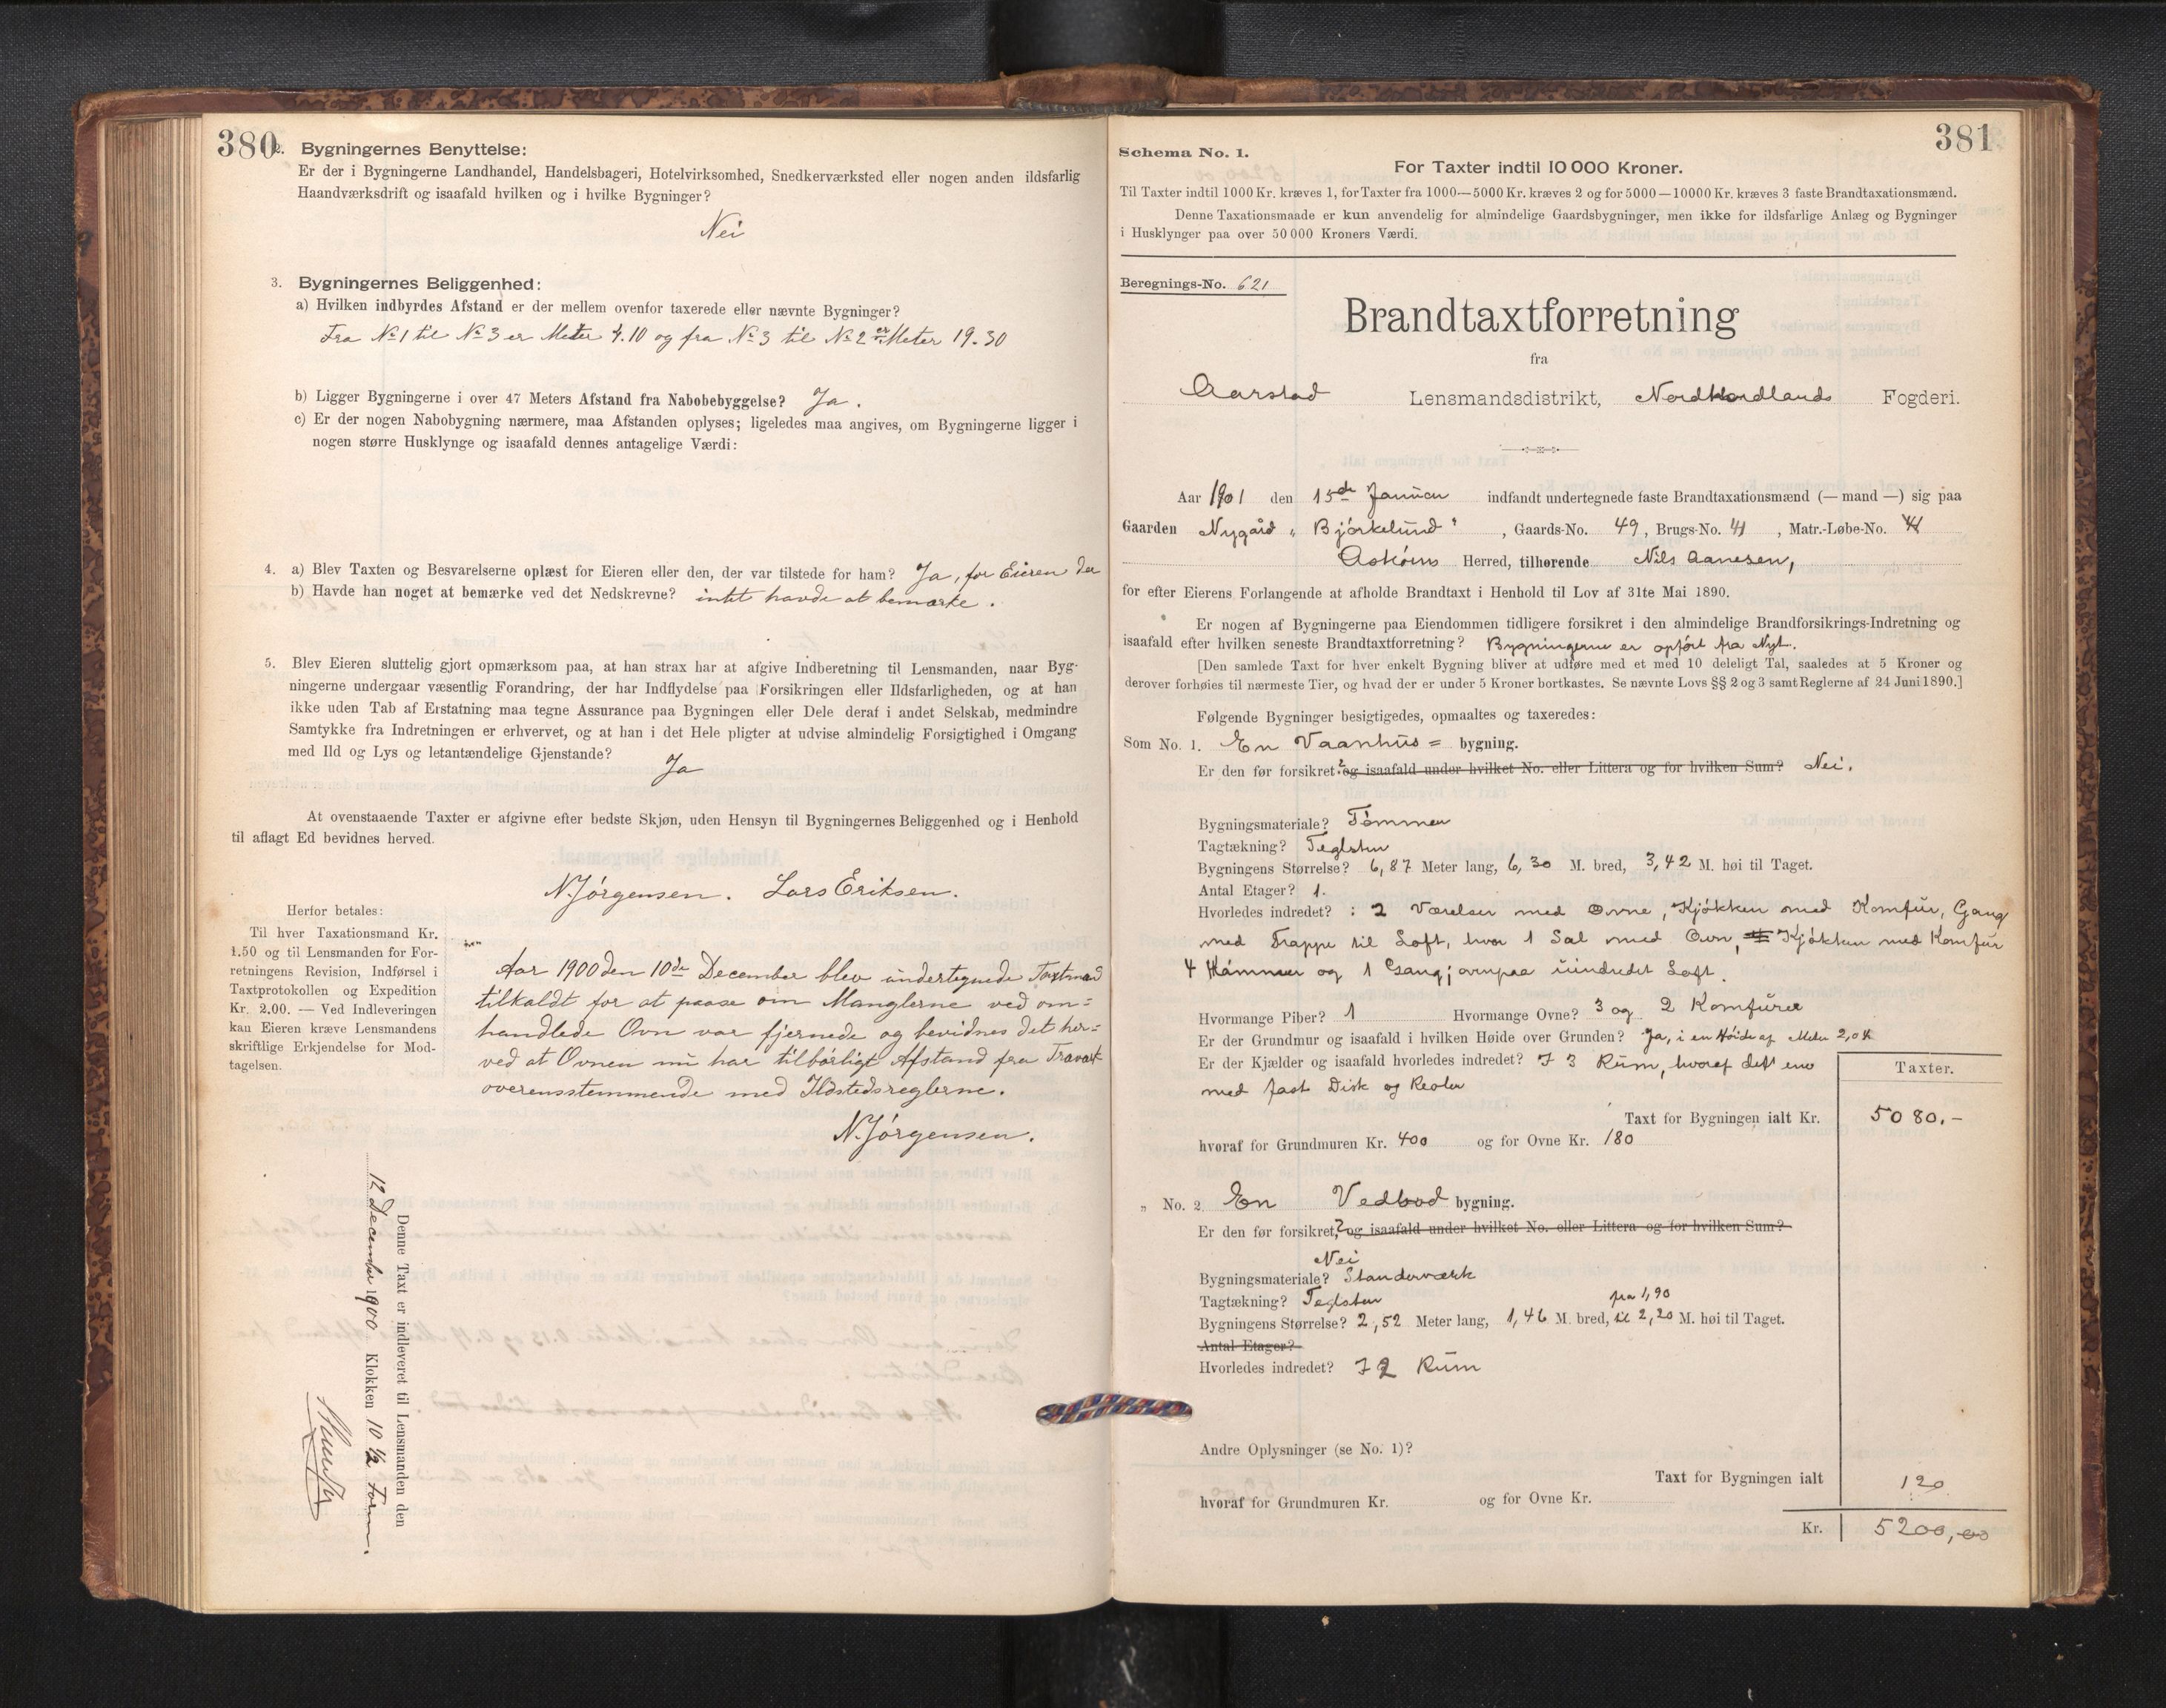 380
2. Bygningernes Benyttelse:
Er der i Bygningerne Landhandel, Handelsbageri, Hotelvirksomhed, Snedkerværksted eller nogen anden ildsfarlig
Haandværksdrift og isaafald hvilken og i hvilke Bygninger?
Nei
3. Bygningernes Beliggenhed:
a) Hvilken indbyrdes Afstand er der mellem ovenfor taxerede eller nævnte Bygninger?
Fra No 1 til No 3 er Meter 4.10 og fra No 3 til No 2 er Meter 19.30
b) Ligger Bygningerne i over 47 Meters Afstand fra Nabobebyggelse? Ja.
c) Er der nogen Nabobygning nærmere, maa Afstanden oplyses; ligeledes maa angives, om Bygningerne ligger i
nogen større Husklynge og isaafald dennes antagelige Værdi:
4. a) Blev Taxten og Besvarelserne oplæst for Eieren eller den, der var tilstede for ham? Ja, for Eieren der
b) Havde han noget at bemærke ved det Nedskrevne? intet havde at bemærke.
5. Blev Eieren sluttelig gjort opmærksom paa, at han strax har at afgive Indberetning til Lensmanden, naar Byg-
ningerne undergaar væsentlig Forandring, der har Indflydelse paa Forsikringen eller Ildsfarligheden, og at han
ikke uden Tab af Erstatning maa tegne Assurance paa Bygningen eller Dele deraf i andet Selskab, medmindre
Samtykke fra Indretningen er erhvervet, og at han i det Hele pligter at udvise almindelig Forsigtighed i Omgang
med Ild og Lys og letantændelige Gjenstande?
Ja
At ovenstaaende Taxter er afgivne efter bedste Skjøn, uden Hensyn til Bygningernes Beliggenhed og i Henhold
til aflagt Ed bevidnes herved.
N. Jørgensen. Lars Eriksen.
Herfor betales:
Til hver Taxationsmand Kr.
1.50 og til Lensmanden for For-
retningens Revision, Indførsel i
Taxtprotokollen og Expedition
Kr. 2.00. — Ved Indleveringen
kan Eieren kræve Lensmandens
skriftlige Erkjendelse for Mod-
tagelsen.
Aar 1900 den 10de December blev undertegnede Taxtmand
tilkaldt for at paase om Manglerne ved om=
handlede Ovn var fjernede og bevidnes det her=
ved at Ovnen nu har tilbørligt Afstand fra Træværk
overensstemmende med Ildstedsreglerne.
N. Jørgensen.
Denne Taxt er indleveret til Lensmanden den
12 December 1900 Klokken 10 1/2 Form.
381
Schema No. 1.
For Taxter indtil 10 000 Kroner.
Til Taxter indtil 1000 Kr. kræves 1, for Taxter fra 1000—5000 Kr. kræves 2 og for 5000—10000 Kr. kræves 3 faste Brandtaxationsmænd.
Denne Taxationsmaade er kun anvendelig for almindelige Gaardsbygninger, men ikke for ildsfarlige Anlæg og Bygninger
i Husklynger paa over 50 000 Kroners Værdi.
Beregnings-No. 621
Brandtaxtforretning
fra
Aarstad Lensmandsdistrikt, Nordhordlands Fogderi.
Aar 1901 den 15de Januar indfandt undertegnede faste Brandtaxationsmænd (— mand —) sig paa
Gaarden Nygård "Bjørkelund", Gaards-No. 49, Brugs-No. 41, Matr.-Løbe-No.
Askøens Herred, tilhørende Nils Aanesen,
for efter Eierens Forlangende at afholde Brandtaxt i Henhold til Lov af 31te Mai 1890.
Er nogen af Bygningerne paa Eiendommen tidligere forsikret i den almindelige Brandforsikrings-Indretning og
isaafald efter hvilken seneste Brandtaxtforretning? Bygningerne er opført fra Nyt.
[Den samlede Taxt for hver enkelt Bygning bliver at udføre med et med 10 deleligt Tal, saaledes at 5 Kroner og
derover forhøies til nærmeste Tier, og hvad der er under 5 Kroner bortkastes. Se nævnte Lovs §§ 2 og 3 samt Reglerne af 24 Juni 1890.]
Følgende Bygninger besigtigedes, opmaaltes og taxeredes:
Som No. 1. En Vaanhus= bygning.
Er den før forsikret? og isaafald under hvilket No. eller Littera og for hvilken Sum? Nei.
Bygningsmateriale? Tømmer
Tagtækning? Teglsten
Bygningens Størrelse? 6,87 Meter lang, 6,30 M. bred, 3,42 M. høi til Taget.
Antal Etager? 1.
Hvorledes indredet? : 2 Værelser med Ovne, Kjøkken med Komfur, Gang
med Trappe til Loft, hvor 1 Sal med Ovn, Kjøkken med Komfur
4 Kammer og 1 Gang; ovenpaa uindredet Loft.
Hvormange Piber? 1 Hvormange Ovne? 3 og 2 Komfurer
Er der Grundmur og isaafald i hvilken Høide over Grunden? Ja, i en Høide af Meter
Er der Kjælder og isaafald hvorledes indredet? I 3 Rum, hvoraf det ene
med fast Disk og Reoler
Taxter.
Taxt for Bygningen ialt Kr. 5080.-
hvoraf for Grundmuren Kr. 400 og for Ovne Kr. 180
" No. 2. En Vedbod bygning.
Er den før forsikret,? og isaafald under hvilket No. eller Littera og for hvilken Sum?
Nei
Bygningsmateriale? Standerværk
Tagtækning? Teglsten
fra 1,90
Bygningens Størrelse? 2,52 Meter lang, 1,46 M. bred, til 2,20 M. høi til Taget.
Antal Etager?
Hvorledes indredet? I 2 Rum
Andre Oplysninger (se No. 1)?
Taxt for Bygningen ialt 120
hvoraf for Grundmuren Kr. og for Ovne Kr.
Kr. 5200,00